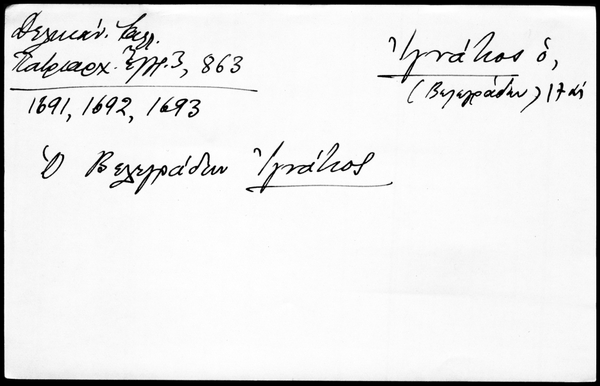 Δελικάν. Καλλ.
Πατριαρχ. Ἔγγρ. 3, 863
1691, 1692, 1693
Ἰγνάτιος ὁ,
(Βελεγράδων) 17 αἰ
Ὁ Βελεγράδων Ἰγνάτιος